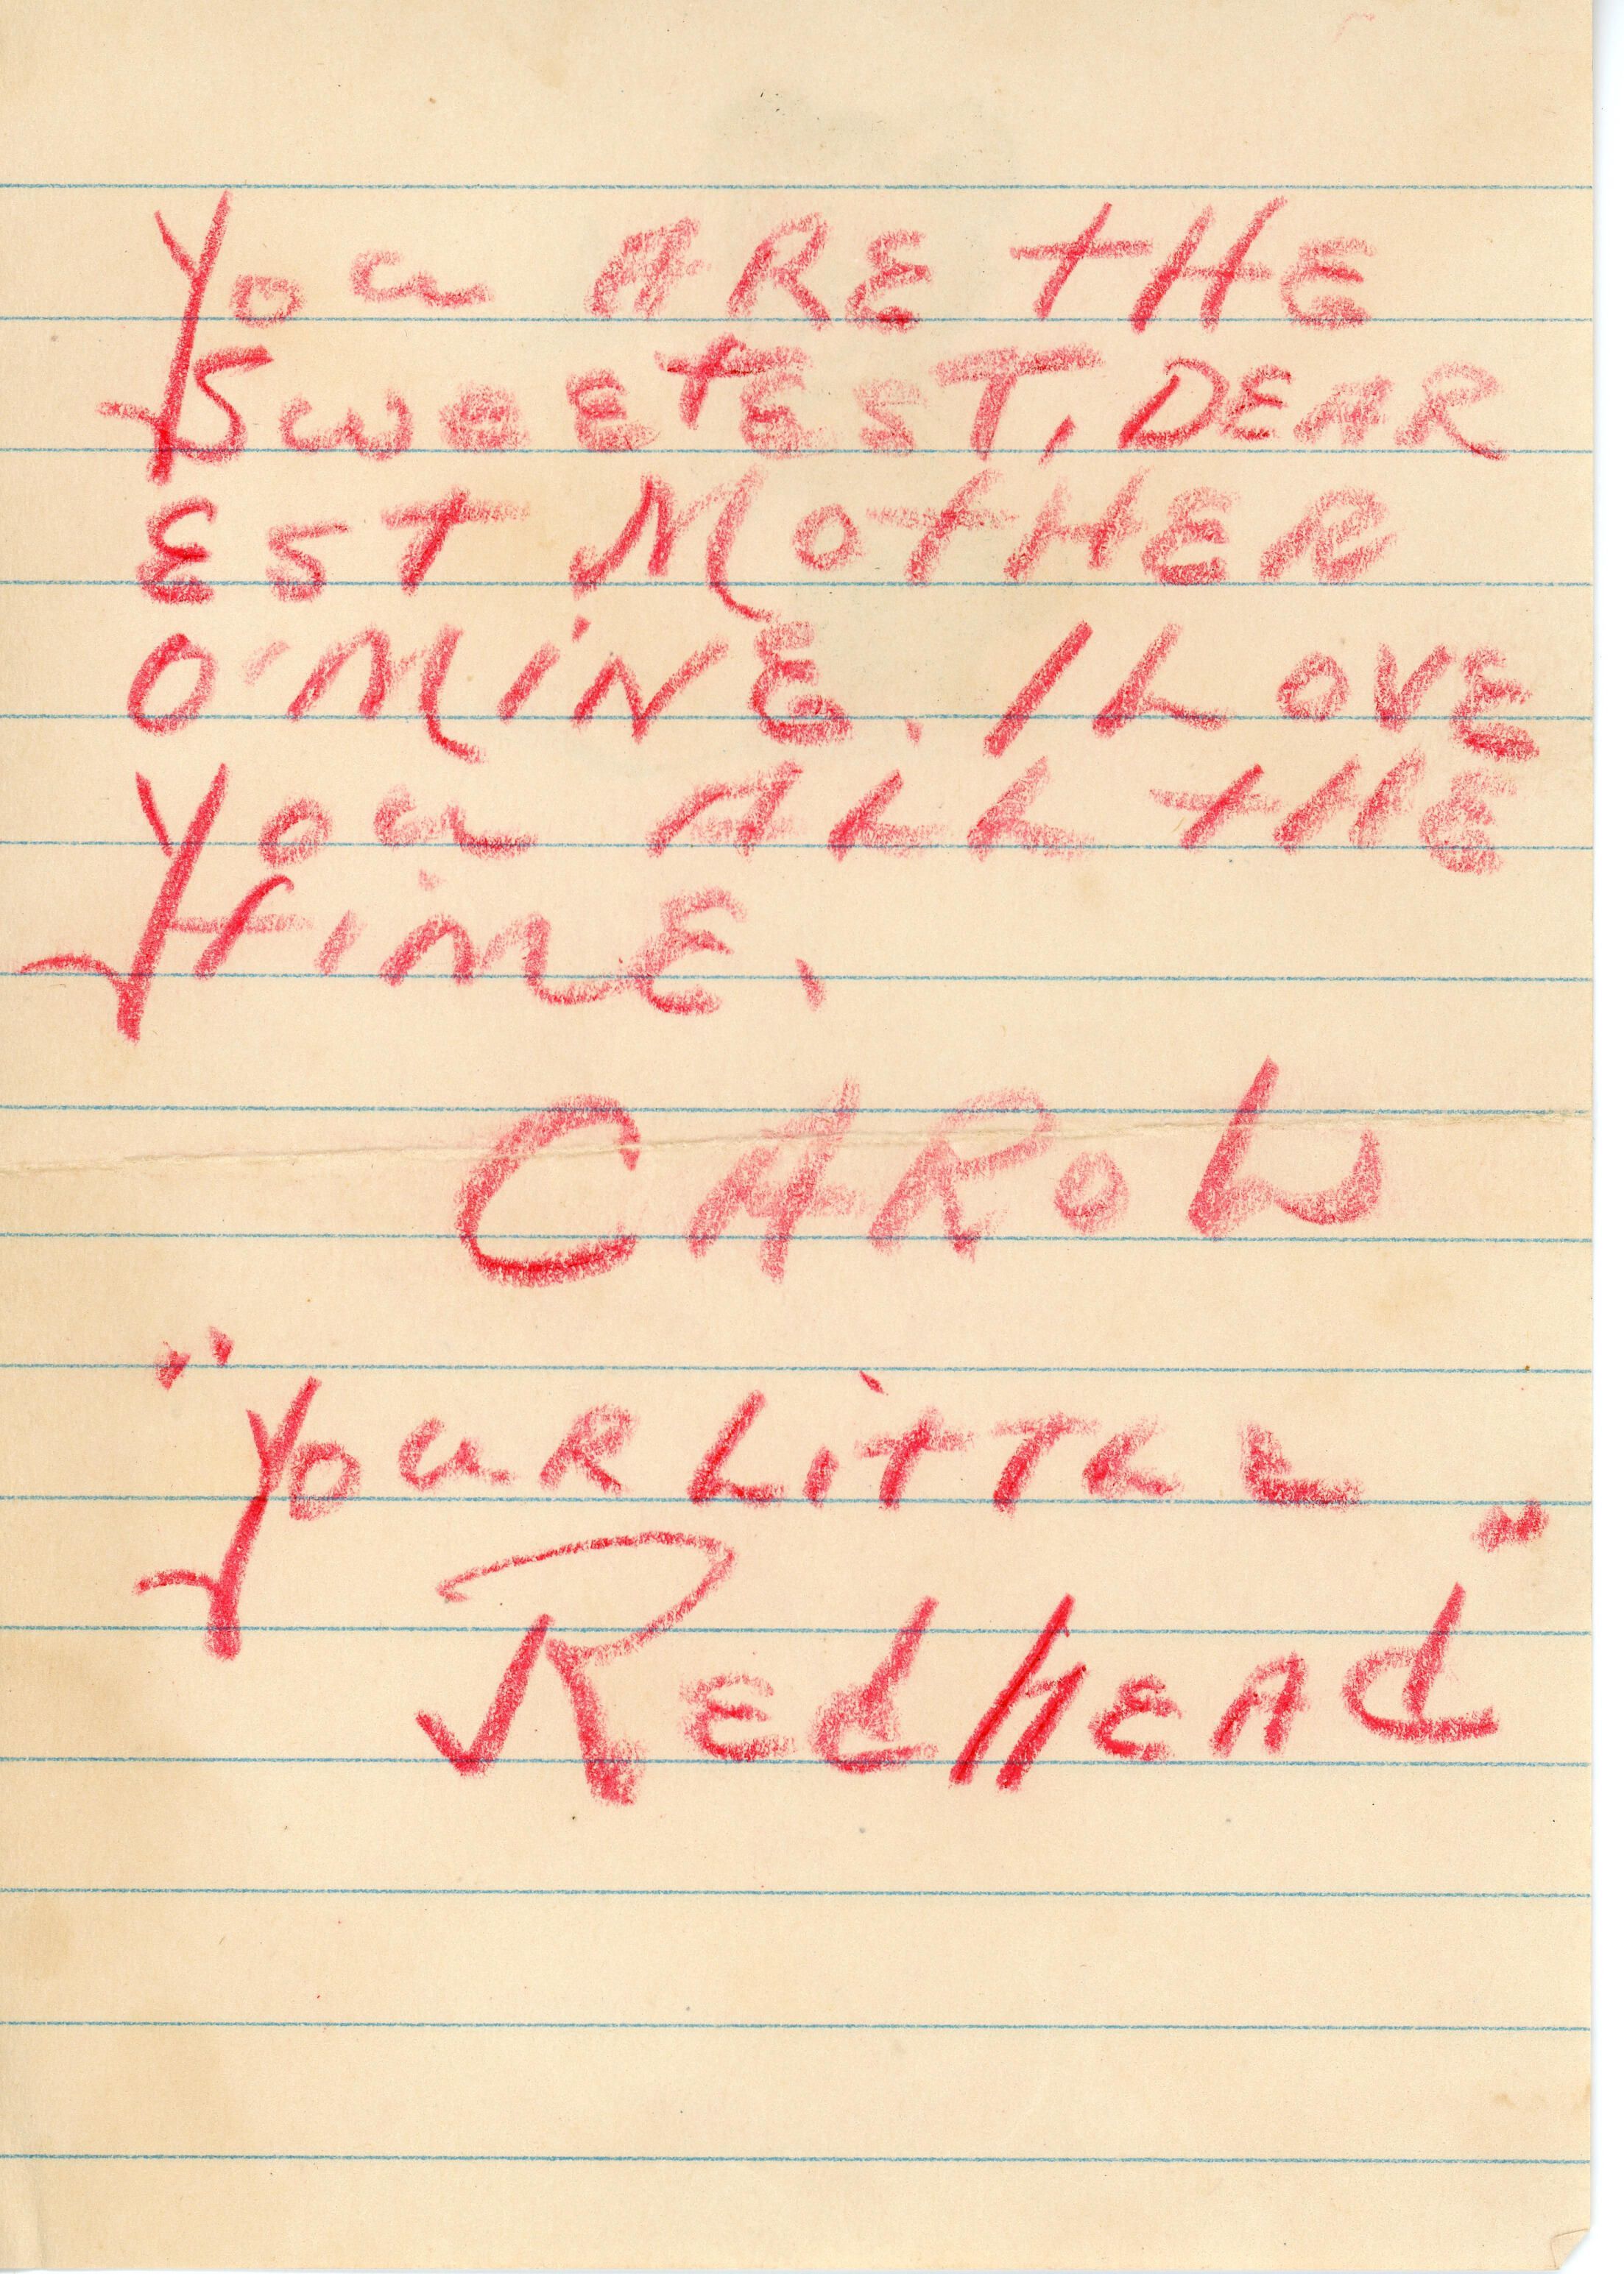 You ARE tHE
SwEEtEST, DEAR
EST MOtHER
O'MiNE. I LOVE
You ALL tHE
tiME.
CAROL
"YouR LittLE
REdHEAd"